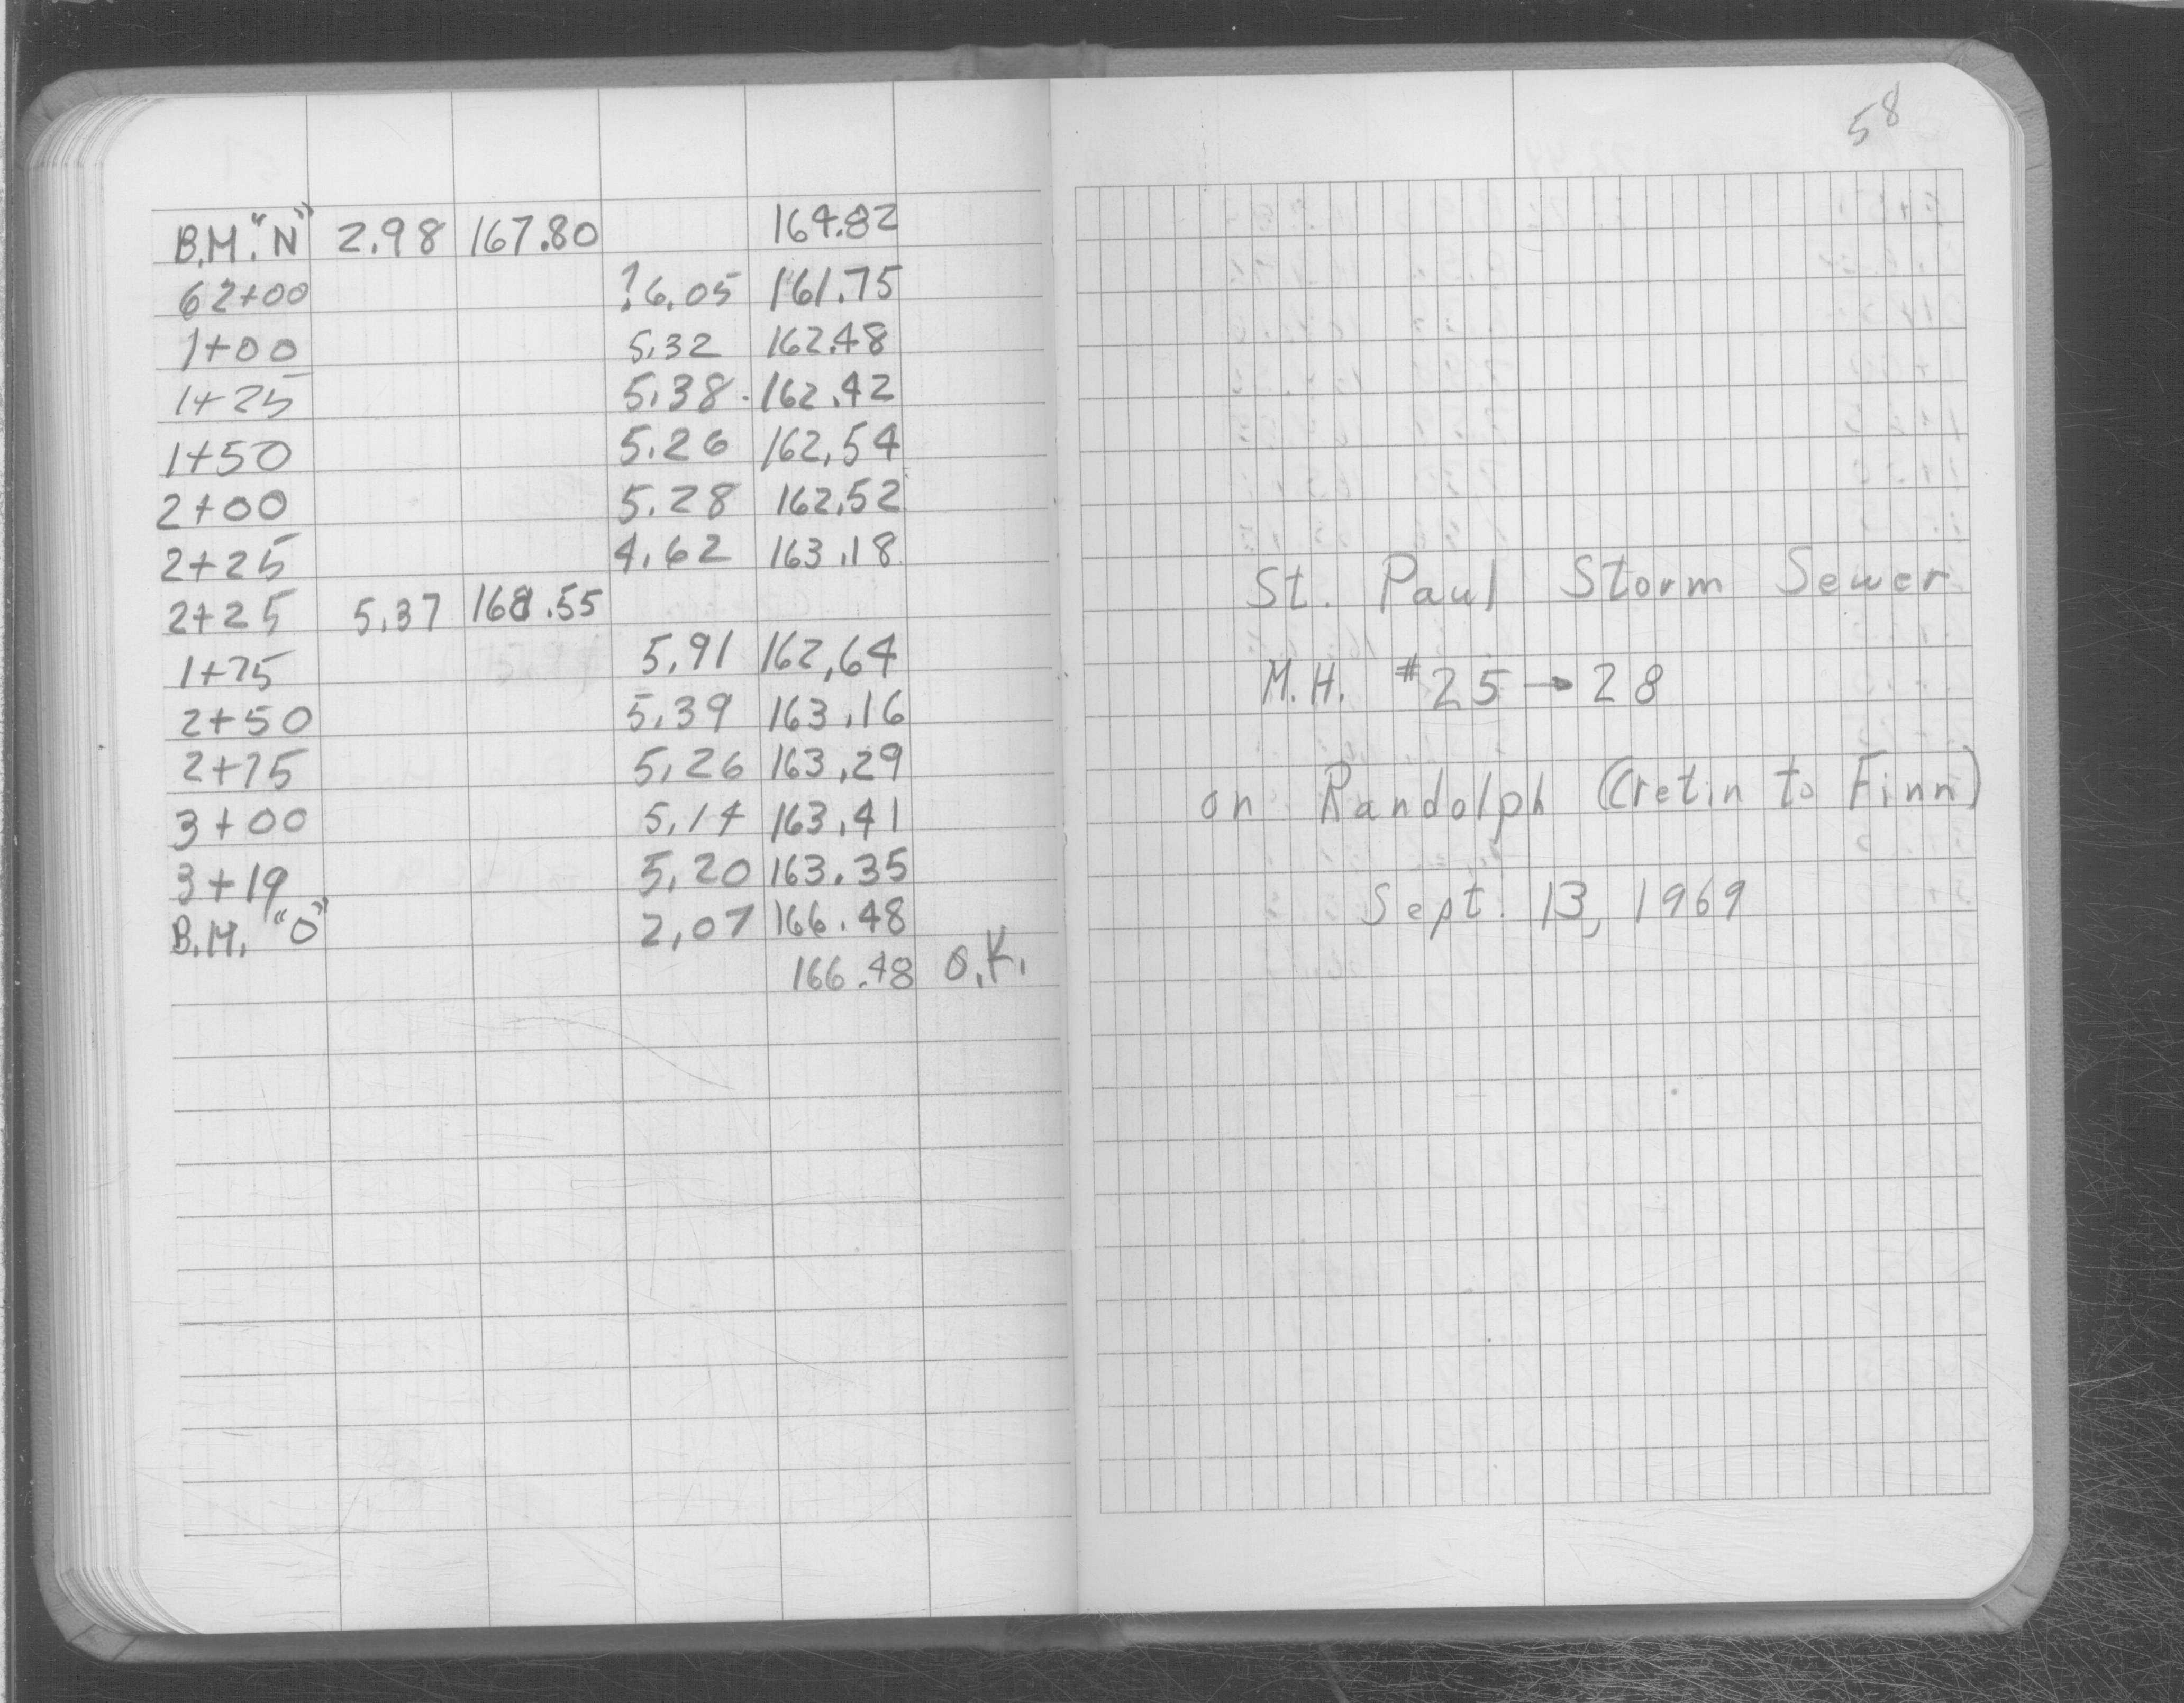 B.M. "N" 2.98 167.80 164.82
62+00 ?6.05 161.75
1+00 5.32 162.48
1+25 5.38 162.42
1+50 5.26 162.54
2+00 5.28 162.52
2+25 4.62 163.18
2+25 5.37 168.55
1+75 5.91 162.64
2+50 5.39 163.16
2+75 5.26 163.29
3+00 5.14 163.41
3+19 5.20 163.35
B.M. "O" 2.07 166.48
166.48 O.K.
58
St. Paul Storm Sewer
M.H. #25→28
on Randolph (Cretin to Finn)
Sept. 13, 1969